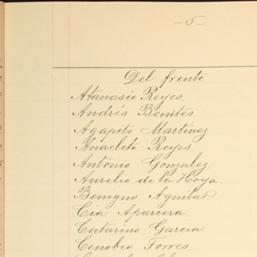 —5—
Del frente
Atanasio Reyes
Andrés Benites
Agapito Martinez
Anacleto Reyes
Antonio Gonzalez
Aurelio de la Hoya
Benigno Aguilar
Cia Aparicera
Catarino Garcia
Cenobio Torres